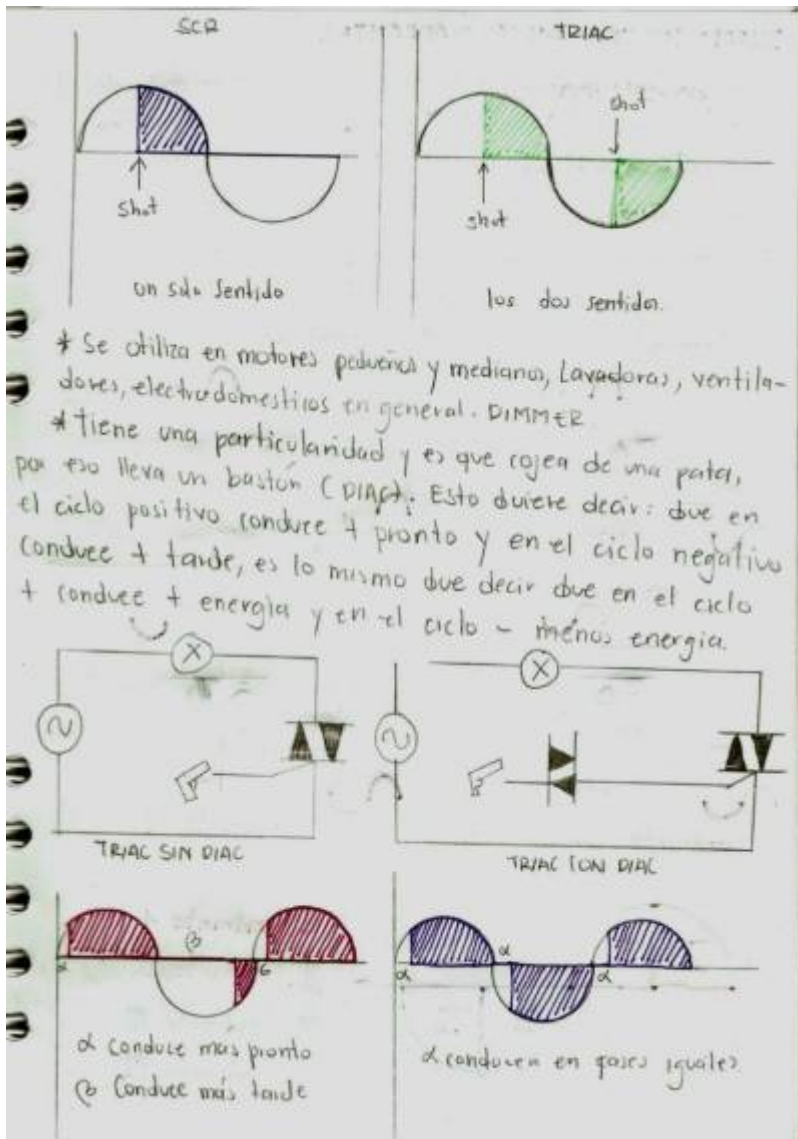 SCR
TRIAC
shot
shot
shot
un solo sentido
los dos sentidos.
* Se utiliza en motores pequeños y medianos, Lavadoras, ventila-
dores, electrodomesticos en general. DIMMER
* Tiene una particularidad y es que cojea de una pata,
por eso lleva un bastón (DIAC). Esto quiere decir: que en
el ciclo positivo conduce + pronto y en el ciclo negativo
conduce + tarde, es lo mismo que decir que en el ciclo
+ conduce + energia y en el ciclo - menos energia.
TRIAC SIN DIAC
TRIAC CON DIAC
β
α
α
α
α
α conduce más pronto
β Conduce más tarde
α conducen en fases iguales